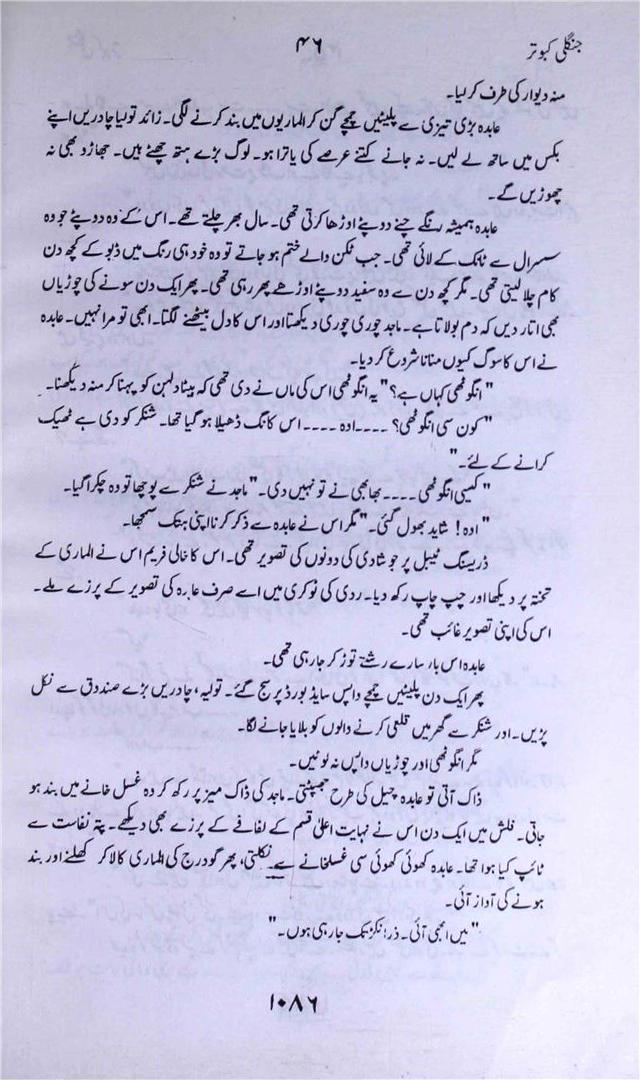 جنگلی کبوتر
۴۶
منہ دیوار کی طرف کر لیا۔
عابدہ بڑی تیزی سے پلیٹیں چمچے گن کر الماریوں میں بند کرنے لگی۔ زائد تولیا چادریں اپنے
بکس میں ساتھ لے لیں۔ نہ جانے کتنے عرصے کی یاترا ہو۔ لوگ بڑے ہتھ چھٹے ہیں۔ جھاڑو بھی نہ
چھوڑیں گے۔
عابدہ ہمیشہ رنگے چنے دوپٹے اوڑھا کرتی تھی۔ سال بھر چلتے تھے۔ اس کے وہ دوپٹے جو وہ
سسرال سے ٹانک کے لائی تھی۔ جب ٹکن والے ختم ہو جاتے تو وہ خود ہی رنگ میں ڈبو کے کچھ دن
کام چلا لیتی تھی۔ مگر کچھ دن سے وہ سفید دوپٹے اوڑھے پھر رہی تھی۔ پھر ایک دن سونے کی چوڑیاں
بھی اتار دیں کہ دم بولاتا ہے۔ ماجد چوری چوری دیکھتا اور اس کا دل بیٹھنے لگتا۔ ابھی تو مرا نہیں۔ عابدہ
نے اس کا سوگ کیوں منانا شروع کر دیا۔
"انگوٹھی کہاں ہے؟" یہ انگوٹھی اس کی ماں نے دی تھی کہ بیٹا دلہن کو پہنا کر منہ دیکھنا۔
"کون سی انگوٹھی؟ ۔۔۔۔ اوہ ۔۔۔۔ اس کا نگ ڈھیلا ہو گیا تھا۔ شنکر کو دی ہے ٹھیک
کرانے کے لئے۔"
"کیسی انگوٹھی ۔۔۔۔ بھابھی نے تو نہیں دی۔" ماجد نے شنکر سے پوچھا تو وہ چکرا گیا۔
"اوہ! شاید بھول گئی۔" مگر اس نے عابدہ سے ذکر کرنا اپنی ہتک سمجھا۔
ڈریسنگ ٹیبل پر جو شادی کی دونوں کی تصویر تھی۔ اس کا خالی فریم اس نے الماری کے
تختہ پر دیکھا اور چپ چاپ رکھ دیا۔ ردی کی ٹوکری میں اسے صرف عابدہ کی تصویر کے پرزے ملے۔
اس کی اپنی تصویر غائب تھی۔
عابدہ اس بار سارے رشتے توڑ کر جا رہی تھی۔
پھر ایک دن پلیٹیں چمچے واپس سایڈ بورڈ پر سج گئے۔ تولیہ، چادریں بڑے صندوق سے نکل
پڑیں۔ اور شنکر سے گھر میں قلعی کرنے والوں کو بلایا جانے لگا۔
مگر انگوٹھی اور چوڑیاں واپس نہ لوٹیں۔
ڈاک آتی تو عابدہ چیل کی طرح جھپٹتی۔ ماجد کی ڈاک میز پر رکھ کر وہ غسل خانے میں بند ہو
جاتی۔ فلش میں ایک دن اس نے نہایت اعلیٰ قسم کے لفافے کے پرزے بھی دیکھے۔ پتہ نفاست سے
ٹائپ کیا ہوا تھا۔ عابدہ کھوئی کھوئی سی غسلخانے سے نکلتی، پھر گودرج کی الماری کا لاکر کھلنے اور بند
ہونے کی آواز آتی۔
"میں ابھی آئی۔ ذرا نکڑ تک جا رہی ہوں۔"
۱۰۸۶